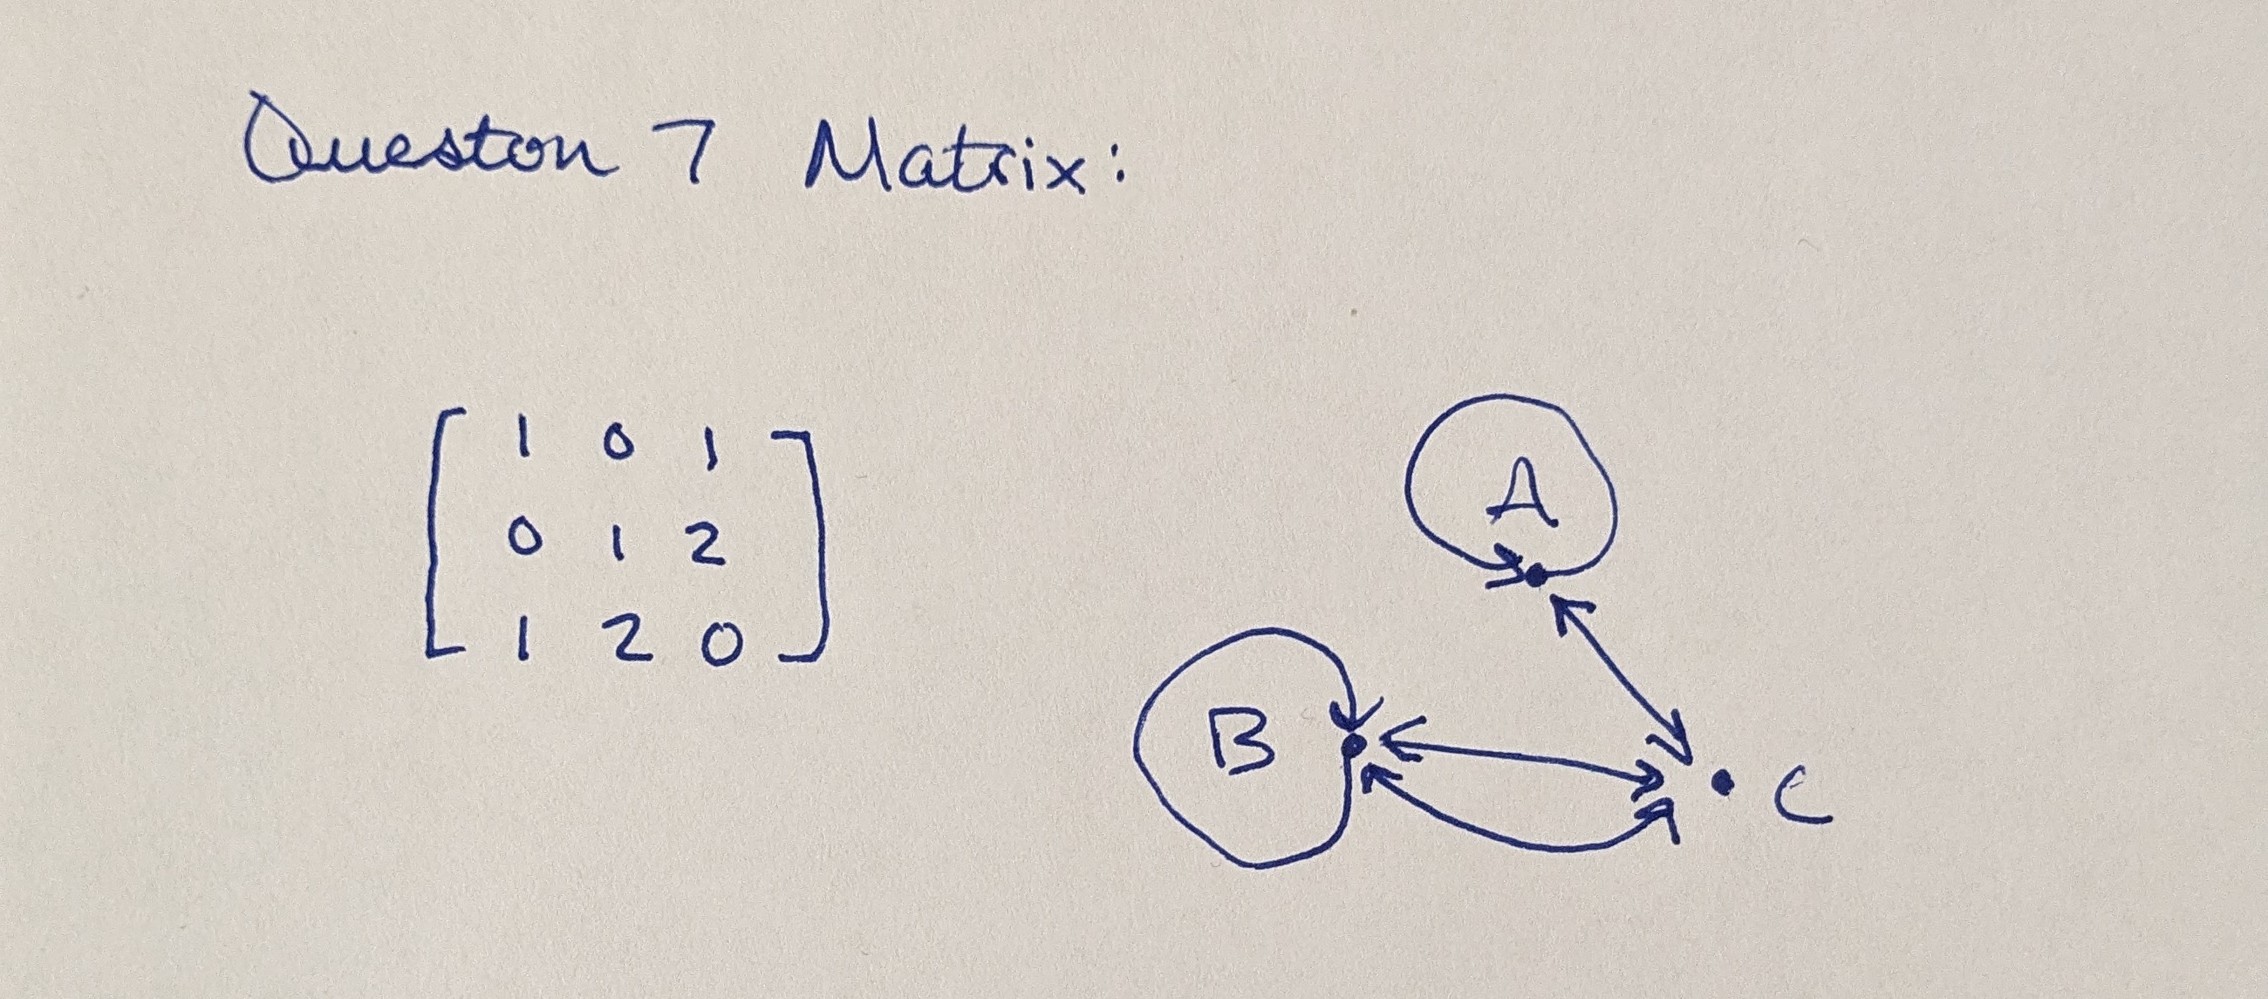 Queston 7 Matrix:
1 0 1
0 1 2
1 2 0
A
B
C